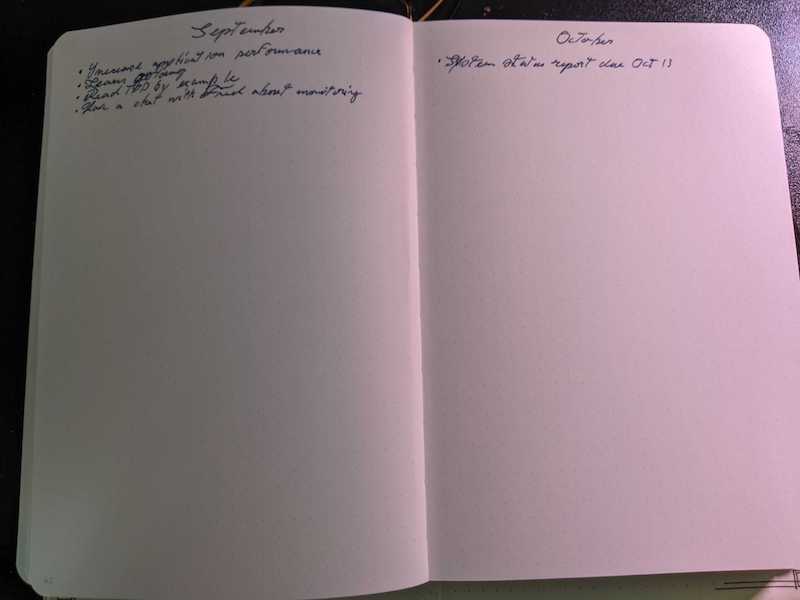 September
• Increase application performance
• Learn golang
• Read TDD by example
• Have a chat with Fred about monitoring
October
• System status report due Oct 13